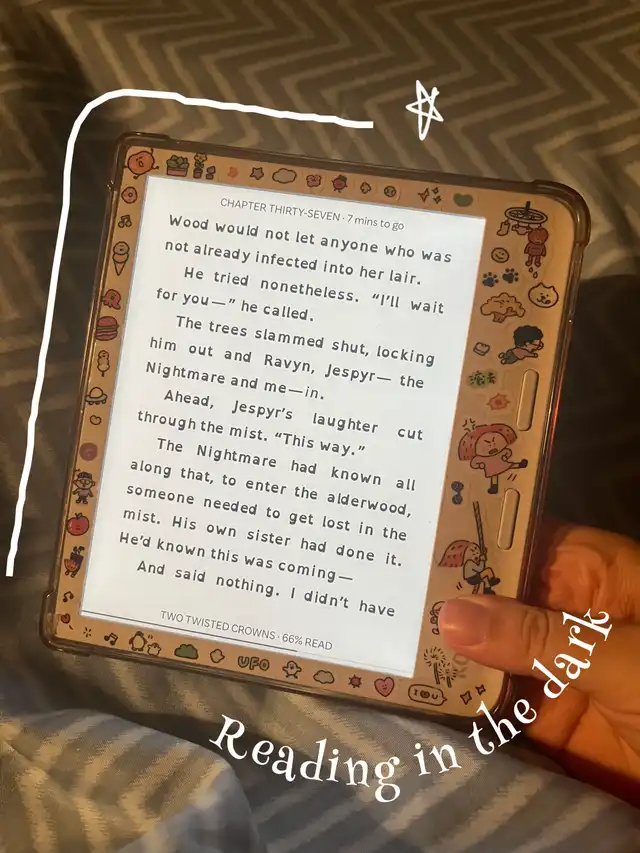 CHAPTER THIRTY-SEVEN · 7 mins to go
Wood would not let anyone who was
not already infected into her lair.
He tried nonetheless. “I’ll wait
for you—” he called.
The trees slammed shut, locking
him out and Ravyn, Jespyr— the
Nightmare and me—in.
Ahead, Jespyr’s laughter cut
through the mist. “This way.”
The Nightmare had known all
along that, to enter the alderwood,
someone needed to get lost in the
mist. His own sister had done it.
He’d known this was coming—
And said nothing. I didn’t have
TWO TWISTED CROWNS · 66% READ
UFO
Reading in the dark